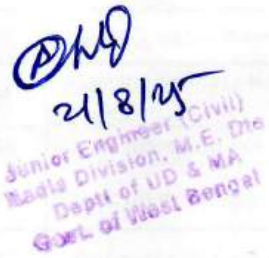 21/8/25
Junior Engineer (Civil)
Nadia Division, M.E. Dte
Deptt of UD & MA
Govt. of West Bengal